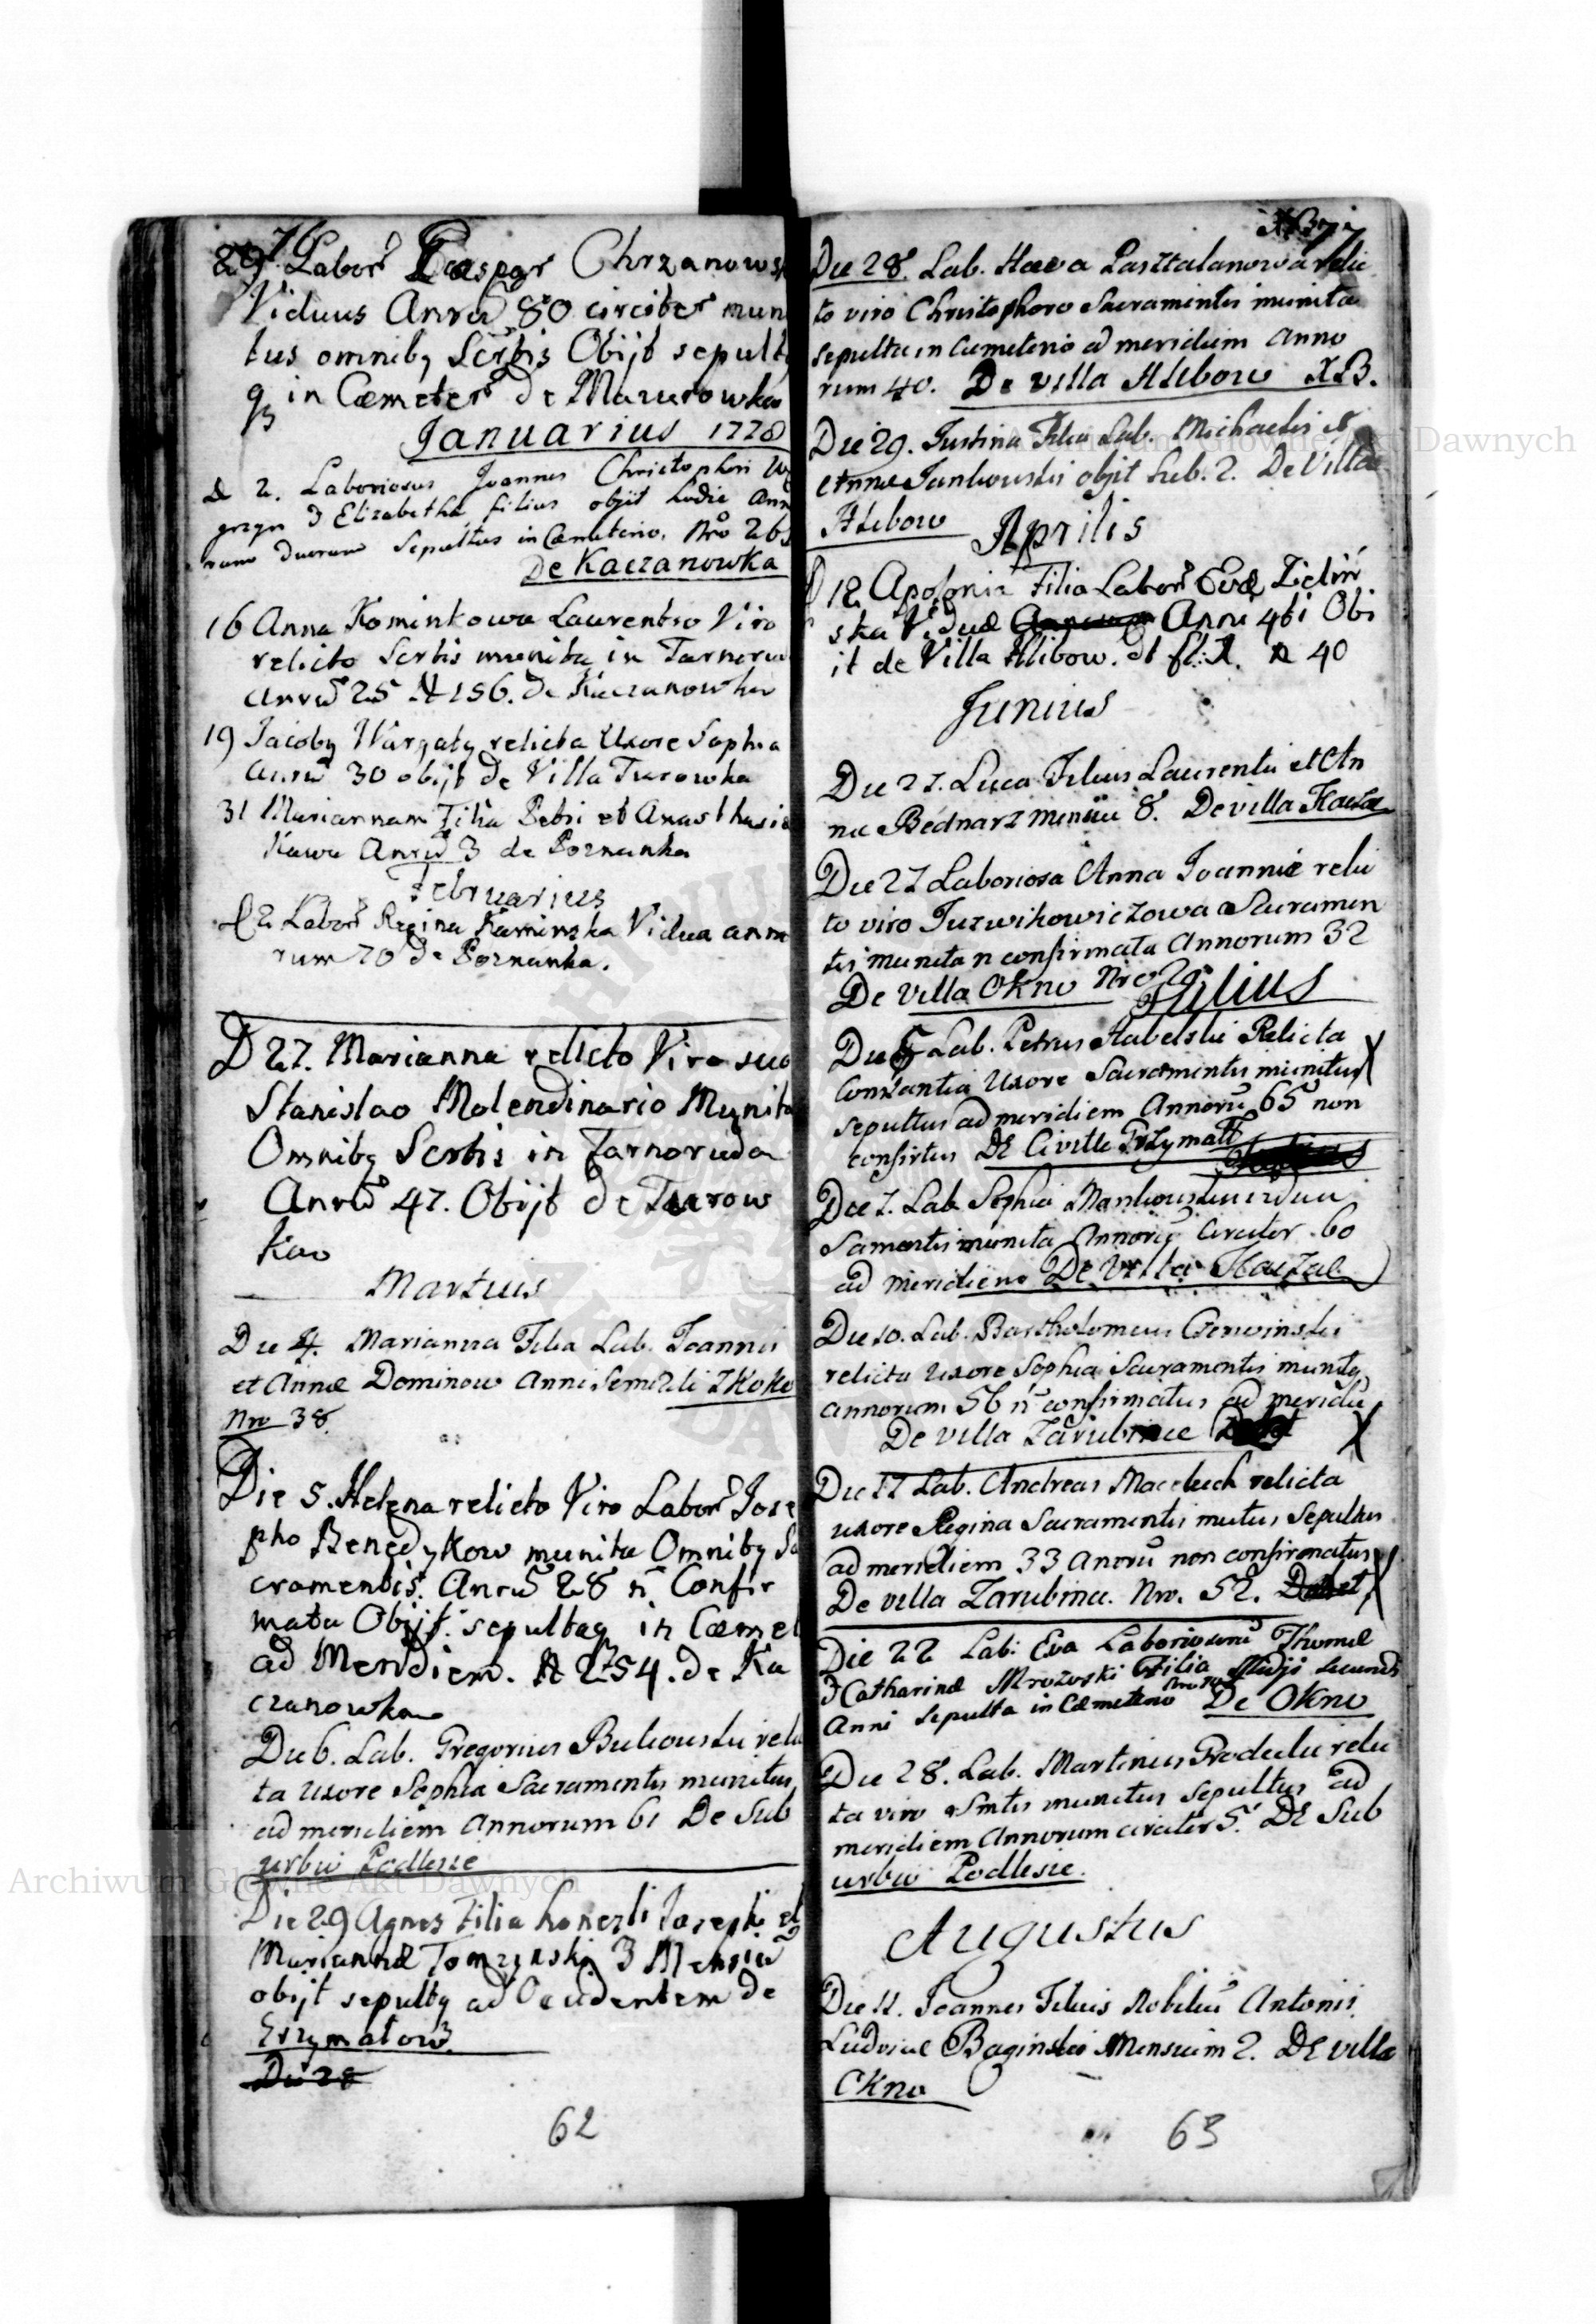 76
29 Labor Caspar Chrzanows
Viduus Annrū 80 circiter muni
tus omniby Scrtis Obijt sepult
q3 in Cæmeter de Mazurowka
Januarius 1778
d 2. Laboriosus Joannes Christophori
& Elizabetha filius obijt hodie Ann
rum duorum Sepultus in Cæmiterio. Nro 26
De Kaczanowka
16 Anna Kominkowa Laurentio Viro
relicto Scrtis munita in Tarnoruda
Annrū 25 N 156. de Kaczanowka
19 Jacoby Wargaty relicta Uxore Sophia
Annrū 30 obijt de Villa Turowka
31 Mariannam Filia Petri et Anasthasia
Kawa Annrū 3 de Poznanka
Februarius
d 2 Labor Regina Kaminska Vidua anno
rum 70 de Poznanka.
D 27. Marianna relicto Viro suo
Stanislao Molendinario Munita
Omniby Scrtis in Tarnoruda
Annrū 47. Obijt de Turow
ka
Martius
Die 4. Marianna Filia Lab. Joannis
et Annæ Dominow Anni Semi
Nro 38.
Die 5. Helena relicto Viro Labor Jose
pho Benedykow munita Omniby Sa
cramentis. Anrū 28 n̄ Confir
mata Obijt. sepultaq in Cæmet
ad Meridiem. N 254. de Ka
czanowka
Die 6. Lab. Gregorius Bukowski relic
ta uxore Sophia Sacramentis munitus
ad meridiem Annorum 61 De Sub
urbio Podlesie
Die 29 Agnes Filia honesti Josephi et
Mariannæ Tomzynski 3 Mensiū
obijt sepulty ad Occidentem de
Grzymalow
Die 28
62
Die 28. Lab. Haeva Pasztalanowa relic
to viro Christophoro Sacramentis munita
sepulta in Cumeterio ad meridiem Anno
rum 40. De villa Hlebow XB.
Die 29. Justina Filia Lab. Michaelis et
Annæ Jankowski objit heb. 2. De Villa
Hlebow
Aprilis
D 12 Apolonia Filia Labor Evæ Zielin
ska Viduæ Anni 4ti Obi
it de Villa Hlibow. N 40
Junius
Die 27. Luca Filius Laurentii et An
na Bednarz mensiu 8. De villa Kacza
Die 27 Laboriosa Anna Joannie relic
to viro Juzwikowiczowa Sacramen
tis munita n confirmata Annorum 32
De villa Okno Nro 29
Julius
Die 5 Lab. Petrus Habelski Relicta
Constantia Uxore Sacramentis munitus
sepultus ad meridiem Annorū 65 non
confirtus DE Civitte Grzymall
Die 7. Lab. Sophia Mankowska vidua
Samentis munita Annorū Circiter 60
ad meridiem De Villa Kacza
Die 10. Lab. Bartholomeus Czerwinski
relicta uxore Sophia Sacramentis munity
annorum 56 n̄ confirmatus ad meridiē
De villa Zarubince
Die 17 Lab. Andreas Maceluch relicta
uxore Regina Sacramentis mutus Sepultus
ad meridiem 33 Anorū non confirmatus
De villa Zarubince. Nro. 52.
Die 22 Lab: Eva Laboriosorū Thomæ
& Catharinæ Mrozoski Filia Medji Secundi
Anni sepulta in Cæmeterio De Okno
Die 28. Lab. Martinus Prodeli relic
ta viro Smtis munitus sepultus ad
meridiem Annorum circiter 5. DE Sub
urbio Podlesie.
Augustus
Die 11. Joannes Filius Nobiliū Antonii
Ludvicæ Baginskis Mensium 2. DE villa
Okno
63
Archiwum Główne Akt Dawnych
Archiwum Główne Akt Dawnych